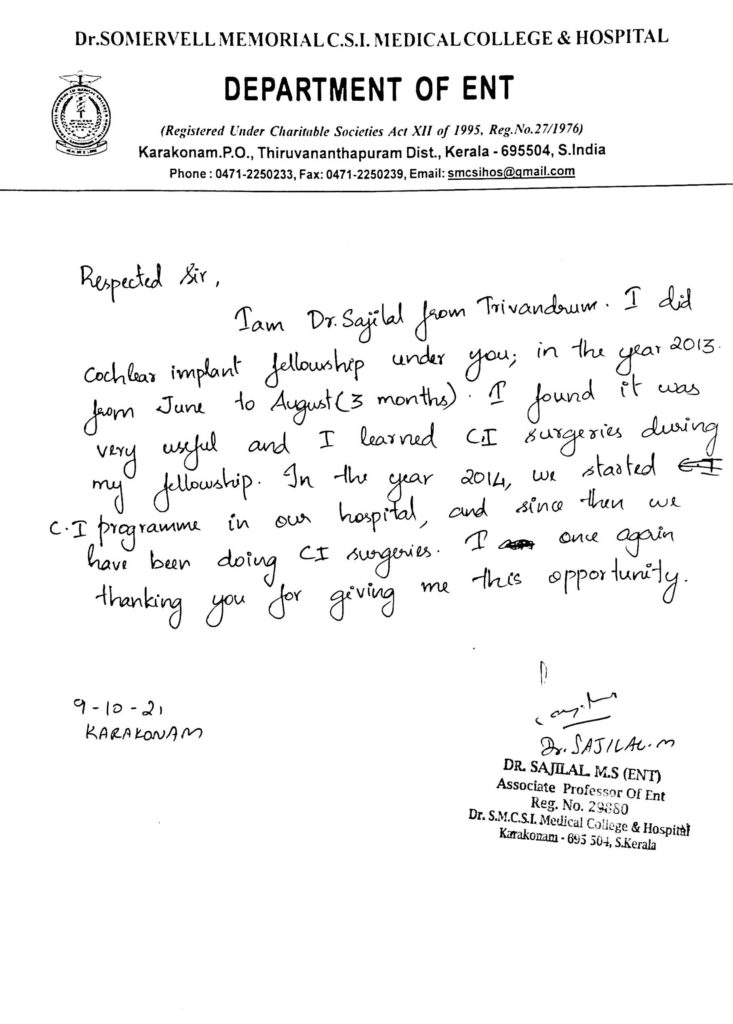 Dr.SOMERVELL MEMORIAL C.S.I. MEDICAL COLLEGE & HOSPITAL
DEPARTMENT OF ENT
(Registered Under Charitable Societies Act XII of 1995, Reg.No.27/1976)
Karakonam.P.O., Thiruvananthapuram Dist., Kerala - 695504, S.India
Phone : 0471-2250233, Fax: 0471-2250239, Email: smcsihos@gmail.com
Respected Sir,
I am Dr. Sajilal from Trivandrum. I did
Cochlear implant fellowship under you; in the year 2013
from June to August (3 months). I found it was
very useful and I learned C.I surgeries during
my fellowship. In the year 2014, we started
C.I programme in our hospital, and since then we
have been doing CI surgeries. I once again
thanking you for giving me this opportunity.
9-10-21
KARAKONAM
Dr. SAJILAL. M
DR. SAJILAL. M.S (ENT)
Associate Professor Of Ent
Reg. No. 29880
Dr. S.M.C.S.I. Medical College & Hospital
Karakonam - 695 504, S.Kerala